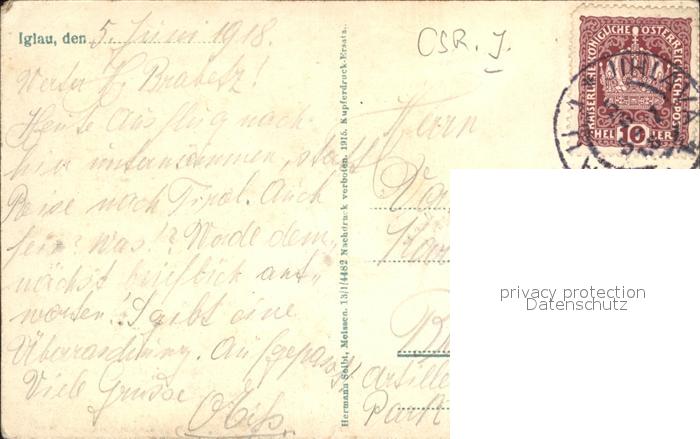 Iglau, den 5. Juni 1918.
Werter H. Brabetz!
Heute Ausflug nach
hier unternommen, statt
Reise nach Tirol. Auch
fein? Was!? Werde dem-
nächst brieflich ant-
worten! S'gibt eine
Überraschung. Aufgepasst!
Viele Grüsse
Hermann Seibt, Meissen. 13/1/4482 Nachdruck verboten. 1915. Kupferdruck-Ersatz.
CSR. I.
KAISERLICHE KÖNIGLICHE ÖSTERREICHISCHE POST
HELLER 10 HELLER
JIHLAVA
Herrn
Artille
Park
privacy protection
Datenschutz